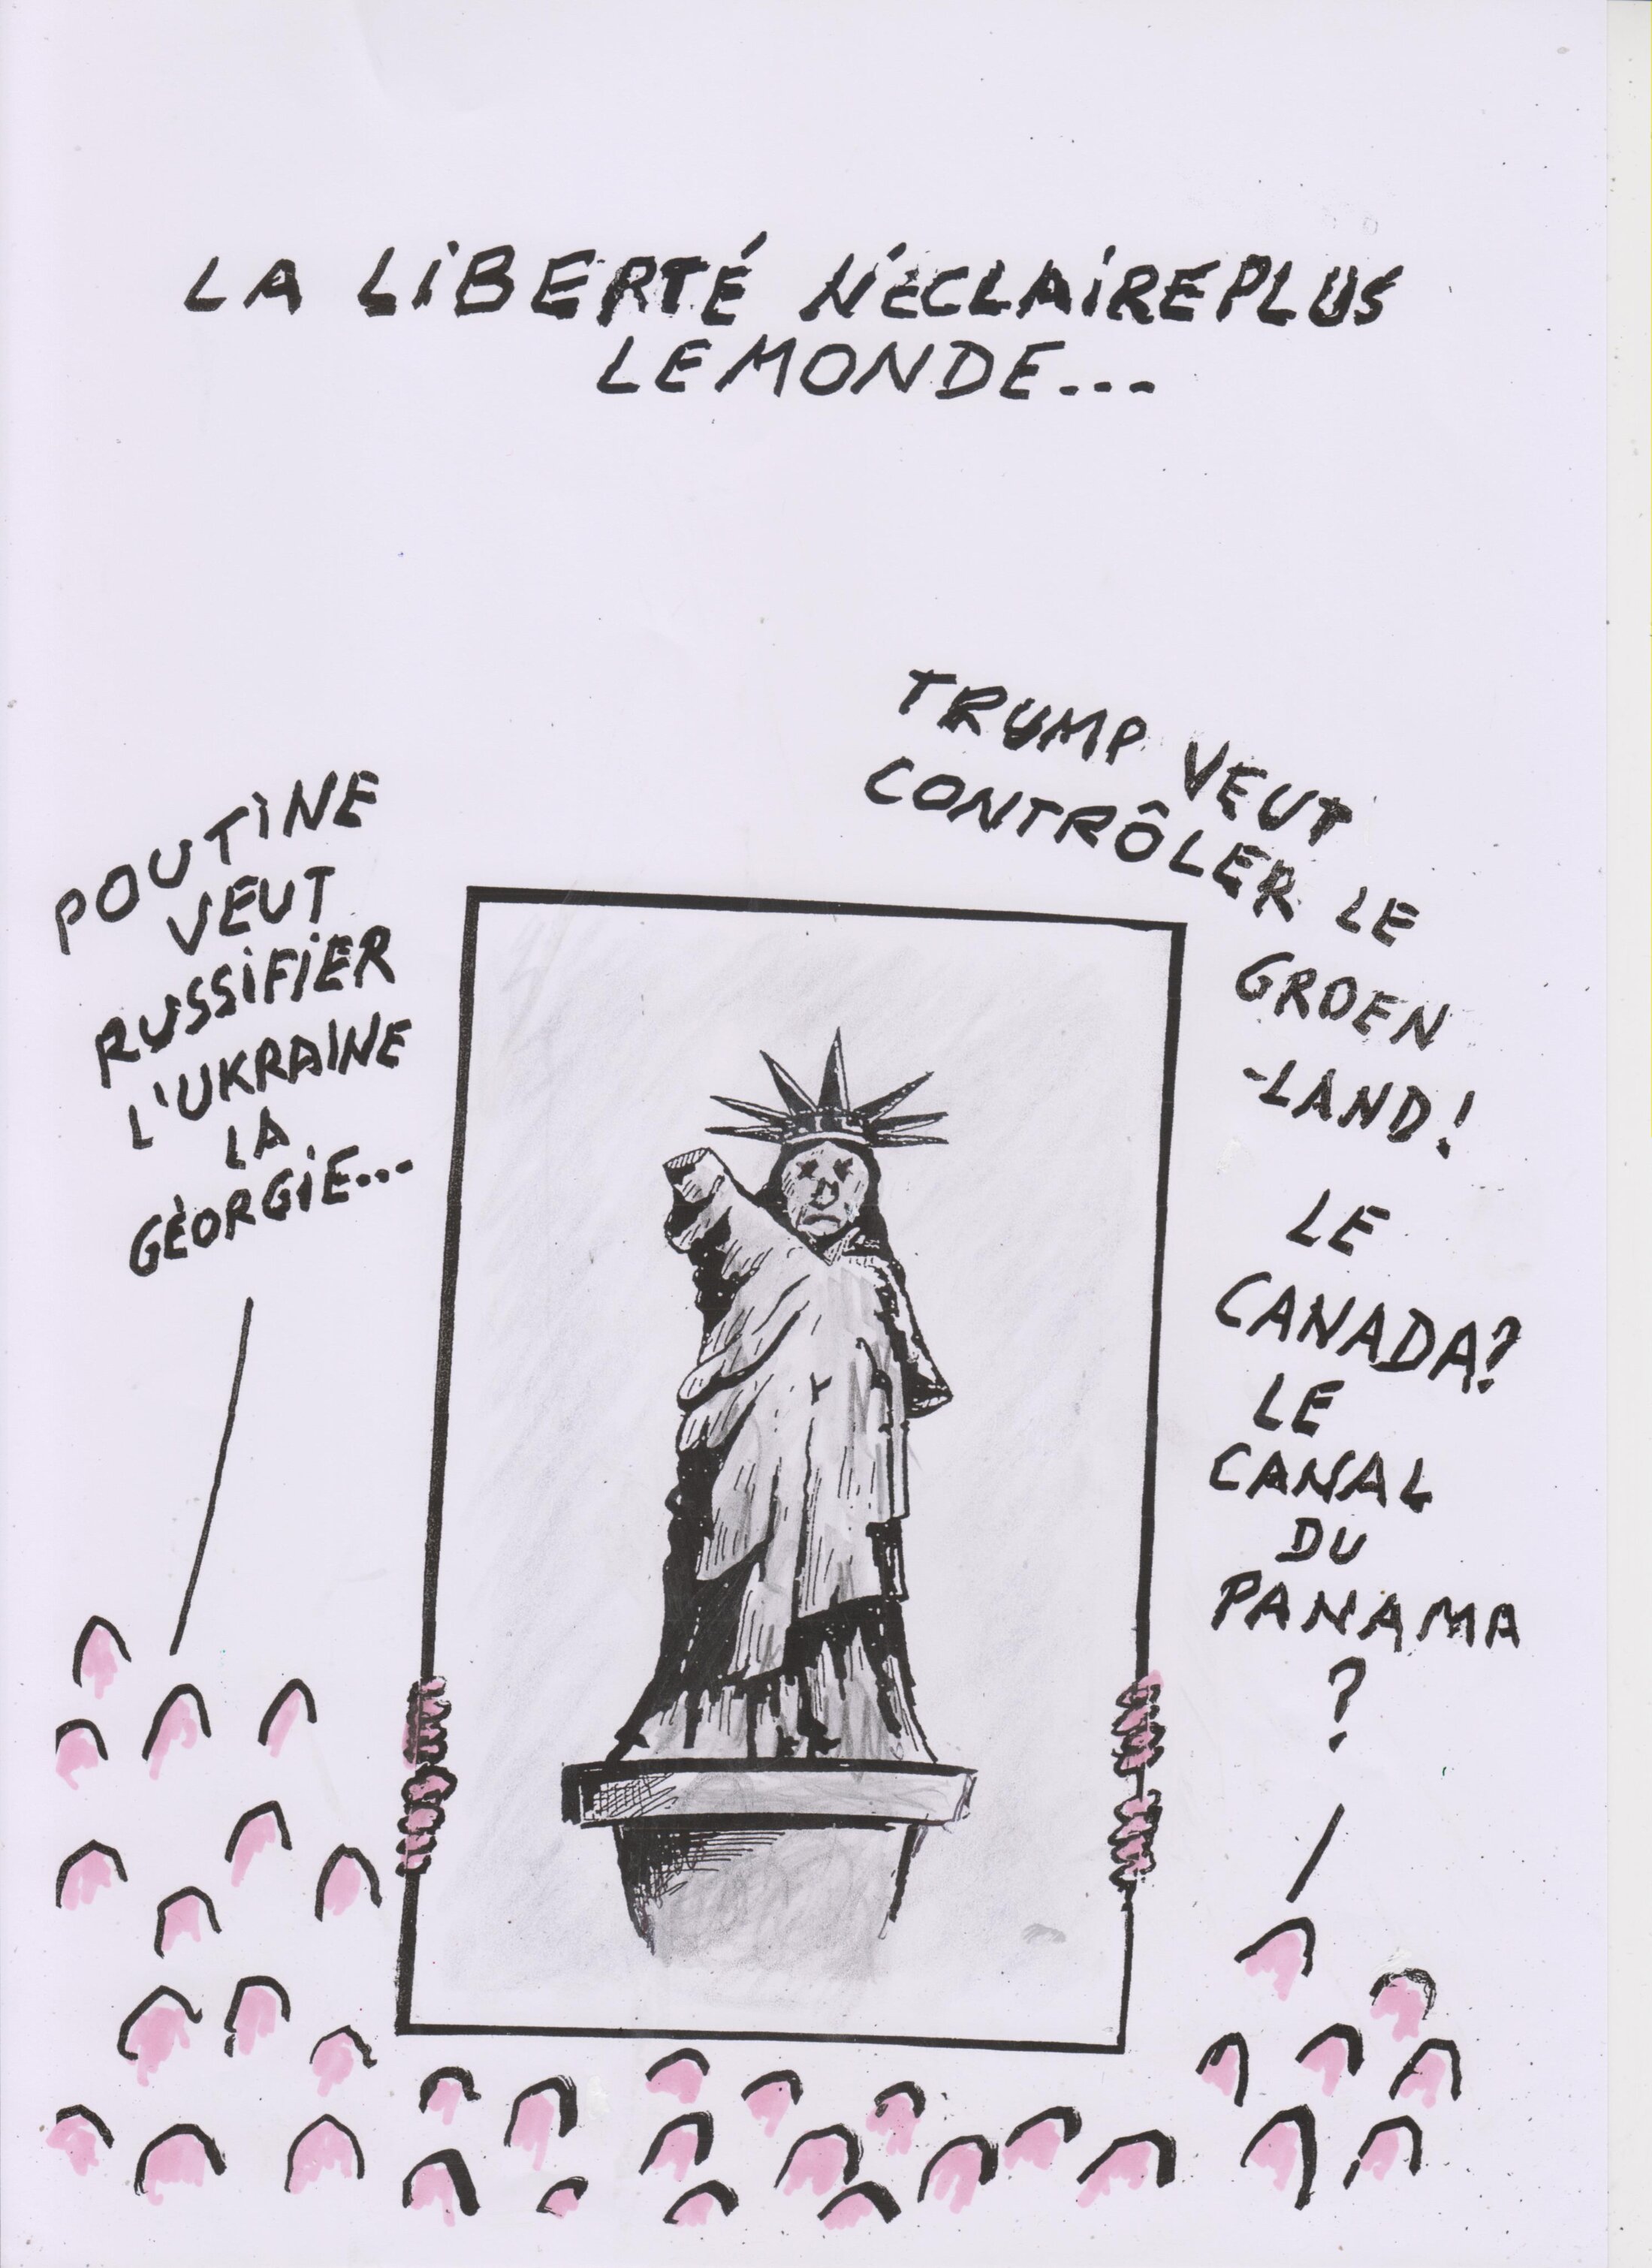 LA LIBERTÉ N'ÉCLAIRE PLUS
LE MONDE...
POUTINE
VEUT
RUSSIFIER
L'UKRAINE
LA
GÈORGIE...
TRUMP VEUT
CONTRÔLER LE
GROEN
-LAND!
LE
CANADA?
LE
CANAL
DU
PANAMA
?